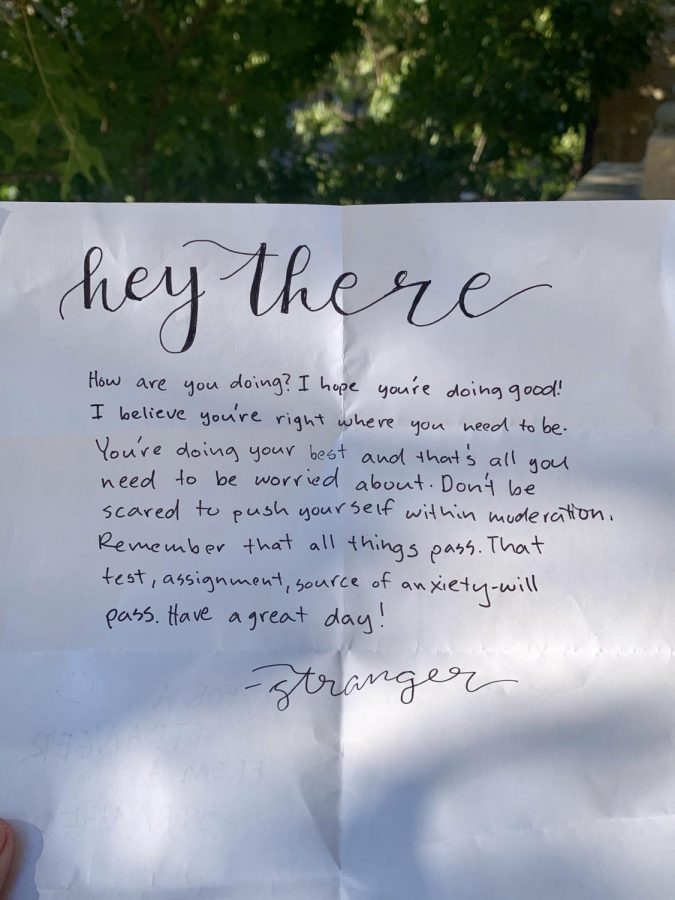 hey there
How are you doing? I hope you're doing good!
I believe you're right where you need to be.
You're doing your best and that's all you
need to be worried about. Don't be
scared to push yourself within moderation.
Remember that all things pass. That
test, assignment, source of anxiety-will
pass. Have a great day!
-stranger
FOR A
STRANGER
FROM A
STRANGER